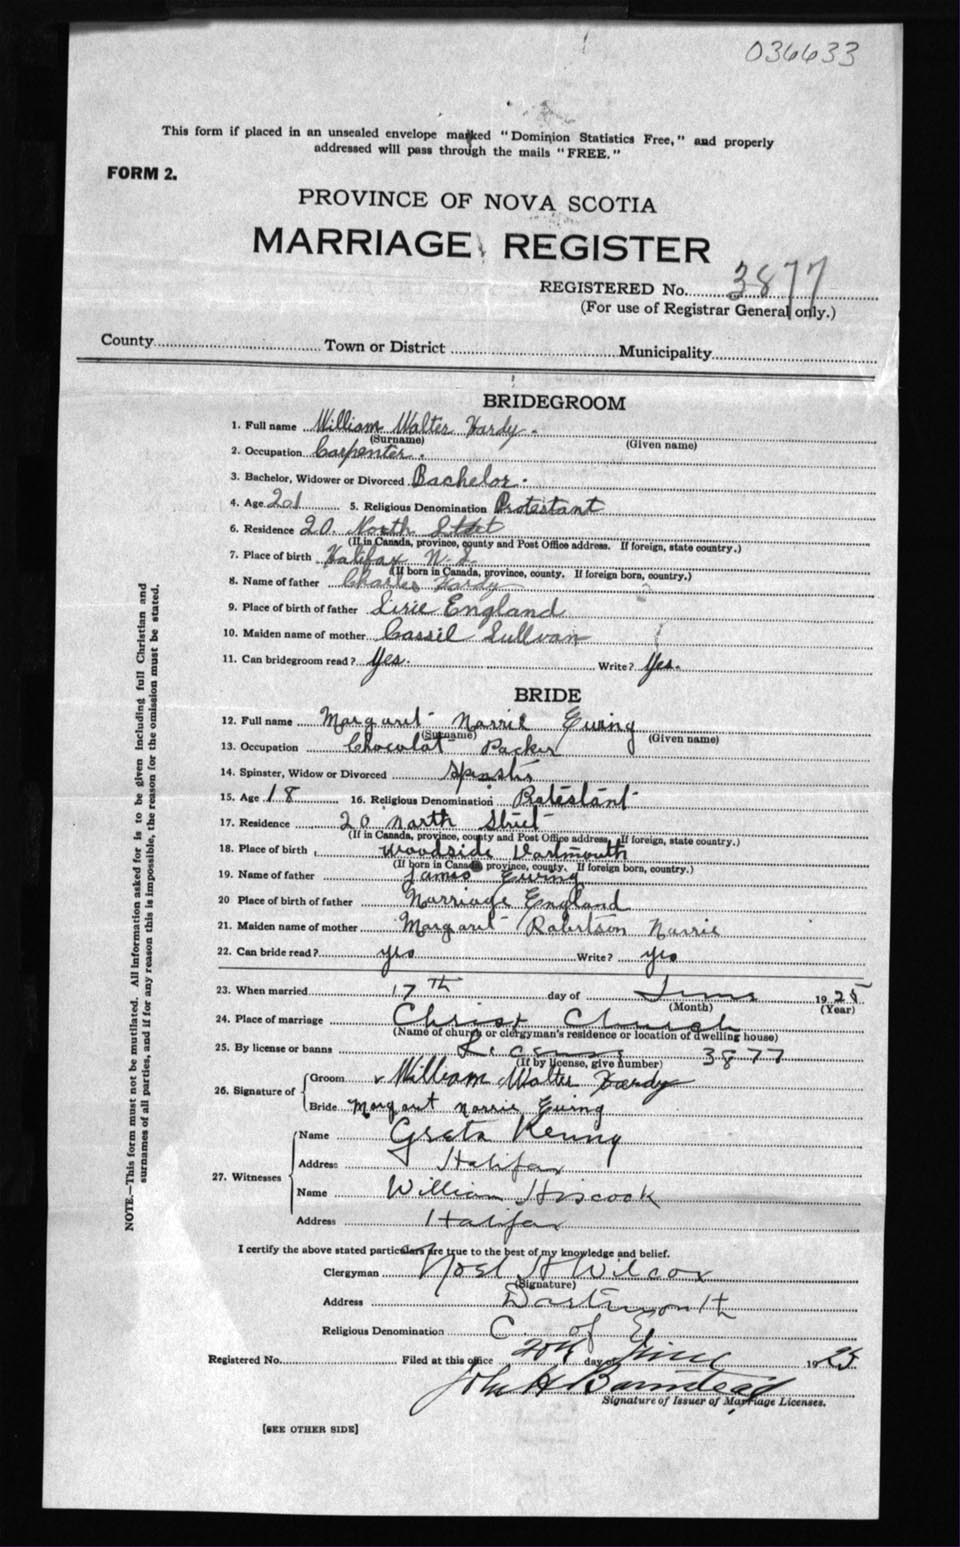 036633
This form if placed in an unsealed envelope marked "Dominion Statistics Free," and properly
addressed will pass through the mails "FREE."
FORM 2.
PROVINCE OF NOVA SCOTIA
MARRIAGE REGISTER
REGISTERED No. 3877
(For use of Registrar General only.)
County Town or District Municipality
BRIDEGROOM
1. Full name William Walter Hardy.
(Surname) (Given name)
2. Occupation Carpenter.
3. Bachelor, Widower or Divorced Bachelor.
4. Age 21 5. Religious Denomination Protestant
6. Residence 20. North Street
(If in Canada, province, county and Post Office address. If foreign, state country.)
7. Place of birth Halifax N.S.
(If born in Canada, province, county. If foreign born, country.)
8. Name of father Charles Hardy
9. Place of birth of father England
10. Maiden name of mother Cassil Sullvan
11. Can bridegroom read? Yes. Write? Yes.
BRIDE
12. Full name Margaret Norrie Ewing
(Surname) (Given name)
13. Occupation Chocolat Packer
14. Spinster, Widow or Divorced Spinster
15. Age 18 16. Religious Denomination Protestant
17. Residence 20 North Street
(If in Canada, province, county and Post Office address, If foreign, state country.)
18. Place of birth Woodside Dartmouth
(If born in Canada province, county. If foreign born, country.)
19. Name of father James Ewing
20 Place of birth of father England
21. Maiden name of mother Margaret Robertson Norrie
22. Can bride read? yes Write? yes
23. When married 17th day of June 1925
(Month) (Year)
24. Place of marriage Christ Church
(Name of church or clergyman's residence or location of dwelling house)
25. By license or banns License 3877
(If by license, give number)
26. Signature of Groom William Walter Hardy
Bride Margaret Norrie Ewing
27. Witnesses Name Greta Kenny
Address Halifax
Name William Hiscock
Address Halifax
I certify the above stated particulars are true to the best of my knowledge and belief.
Clergyman Noel H Wilcox
(Signature)
Address Dartmouth
Religious Denomination C. of E
Registered No. Filed at this office 20th day of June 1925
John H Barnstead
Signature of Issuer of Marriage Licenses.
[SEE OTHER SIDE]
NOTE.—This form must not be mutilated. All information asked for is to be given including full Christian and
surnames of all parties, and if for any reason this is impossible, the reason for the omission must be stated.